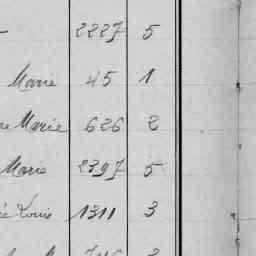 2227 5
Marie 45 1
Marie 626 2
Marie 2397 5
Louis 1311 3